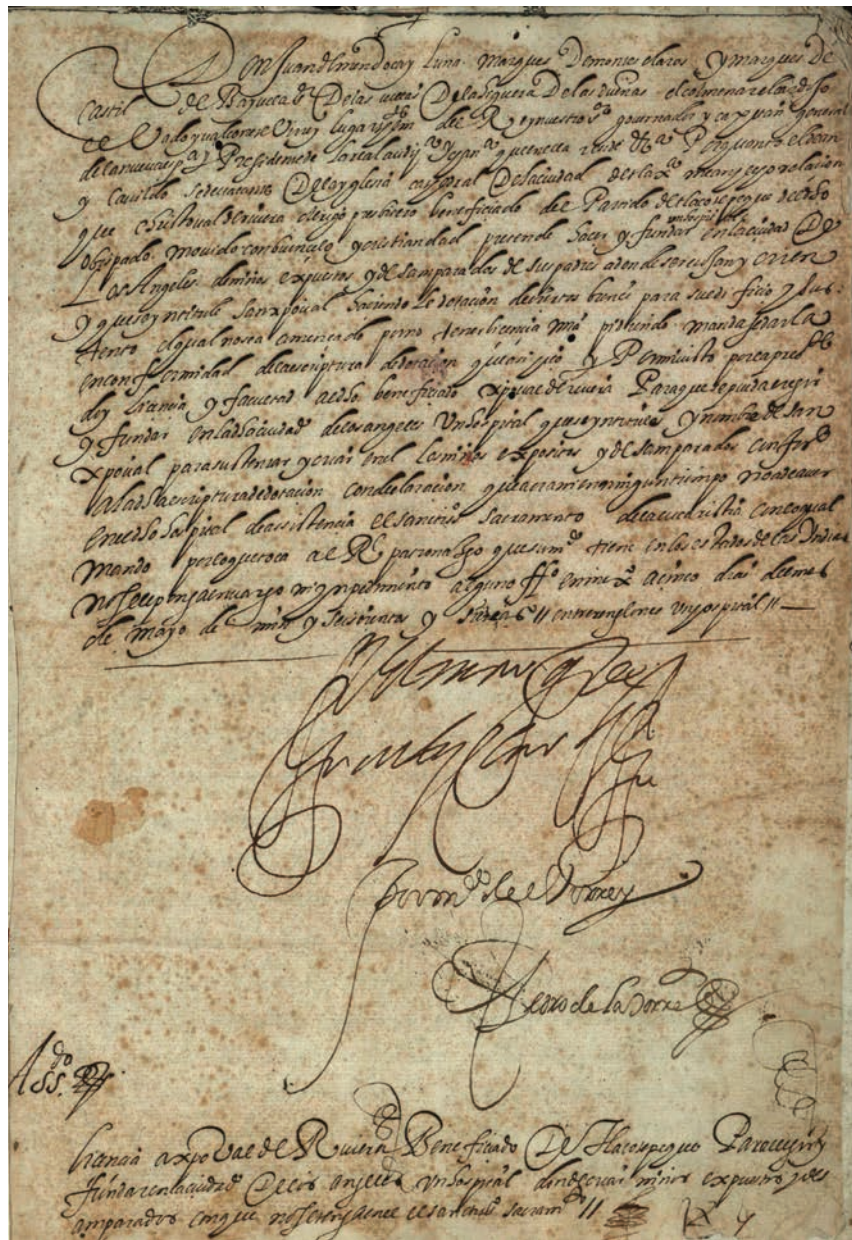 Don Juan de mendoça y Luna Marques De montes claros y marques de
Castil de Bayuela Sr De las villas De la higuera De las dueñas el colmenar el cardoso
el Vado y valconete Virrey lugar theniente del Rey nuestro sr governador y capitan general
de la nueva españa y Presidente de la real audiª Por quanto el Dean
y Cavildo sedevacante De la yglesia catredal De la ciudad de tlaxª me an hecho relacion
que christoval de rivera clerigo presbitero beneficiado del Partido de tlacotepeque de dho
obispado movido con buen celo y cristiandad pretende hacer y fundar un hospital en la ciudad De
Los Angeles de niños expuestos y desamparados de sus padres a donde se recojan y crien
y que se yntitule san xpoval haciendole dotacion de ciertos bienes para su edificio y sus
tento el qual no se a començado por no tener licencia mia pidiendo mandase darla
en conformidad de la escriptura de dotacion que oriç.. y Por mi visto por la presste
doy licencia y facultad al dho beneficiado xpoval de rivera Para que se pueda erigir
y fundar en la dha ciudad de los angeles Un hospital que se yntitule y nombre de san
xpoval para sustentar y criar en el los niños expositos y desamparados conforme
A la dha escriptura de dotacion con declaracion que aora ni en ningun tiempo no a de aver
en el dho hospital de asistencia el santissº sacramento de la eucaristia con lo qual
mando por lo que toca al Rl patronazgo que su mgd tiene en los estados de las Yndias
no se le ponga enbargo ni ynpedimento alguno ffº en mexcº a cinco dias del mes
de mayo de mill y seiscientos y // entre renglones un hospital //
El marques
de montesclaros
Por mdo del Virrey
Pedro de la Torre
Assdo
licencia a xpoval de Rivera Beneficiado De tlacotepeque Para erigir y
fundar en la ciudad De los angeles un hospital donde criar niños expuestos y des
amparados con que no se tenga en el el santissº sacramtº //